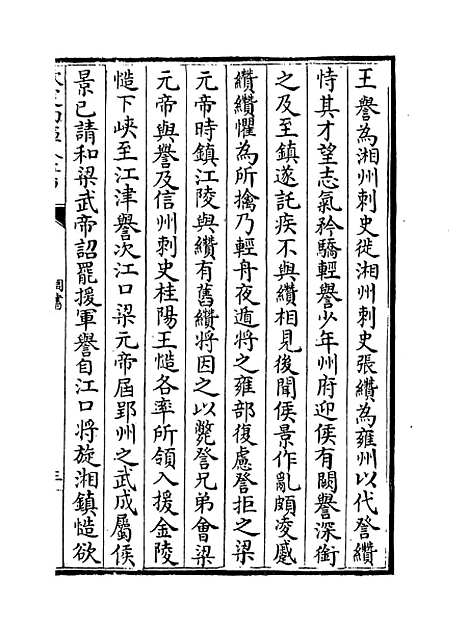 王譽為湘州刺史徙湘州刺史張纘為雍州以代詧纘
恃其才望志氣矜驕輕譽少年州府迎侯有闕譽深銜
之及至鎮遂託疾不與纘相見後聞侯景作亂頗凌蹙
纘纘懼為所擒乃輕舟夜遁將之雍部復慮詧拒之梁
元帝時鎮江陵與纘有舊纘將因之以斃詧兄弟會梁
元帝與譽及信州刺史桂陽王慥各率所領入援金陵
慥下峽至江津譽次江口梁元帝屆郢州之武成屬侯
景已請和梁武帝詔罷援軍譽自江口將旋湘鎮慥欲
周書